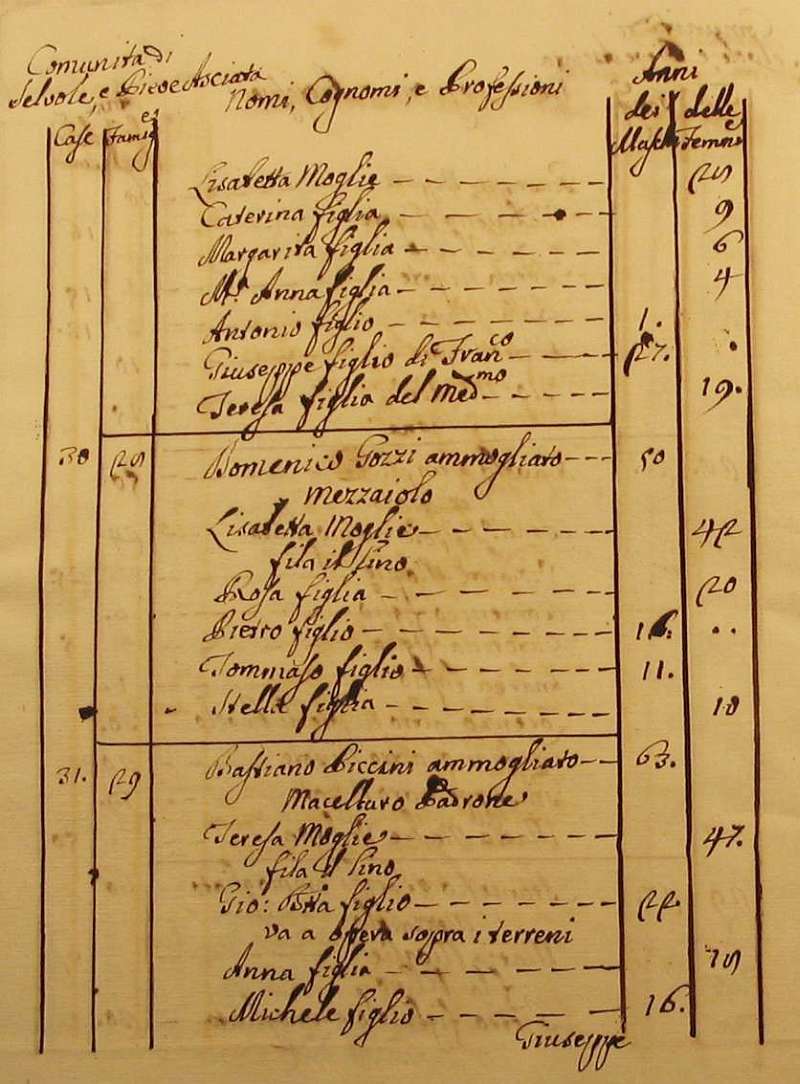 Comunità di
Selvole, e Pieve Asciata
Nomi, Cognomi, e Professioni
Anni
dei Masch delle Femme
Case Famige
Lisabetta Moglie
Caterina figlia 9
Margarita figlia 6
Mª Anna figlia 4
Antonio figlio 1.
Giuseppe figlio di Franco 27.
Teresa figlia del Medmo 19.
30 Domenico Gozzi ammogliato 50
Mezzaiolo
Lisabetta Moglie 42
fila il lino
Rosa figlia 20
Pietro figlio 16.
Tommaso figlio 11.
Stella figlia 10
31. 29 Bastiano Piccini ammogliato 63.
Macellaro Padrone
Teresa Moglie 47.
fila il lino
Gio: Bta figlio 22.
va a opera sopra i terreni
Anna figlia
Michele figlio 16.
Giuseppe